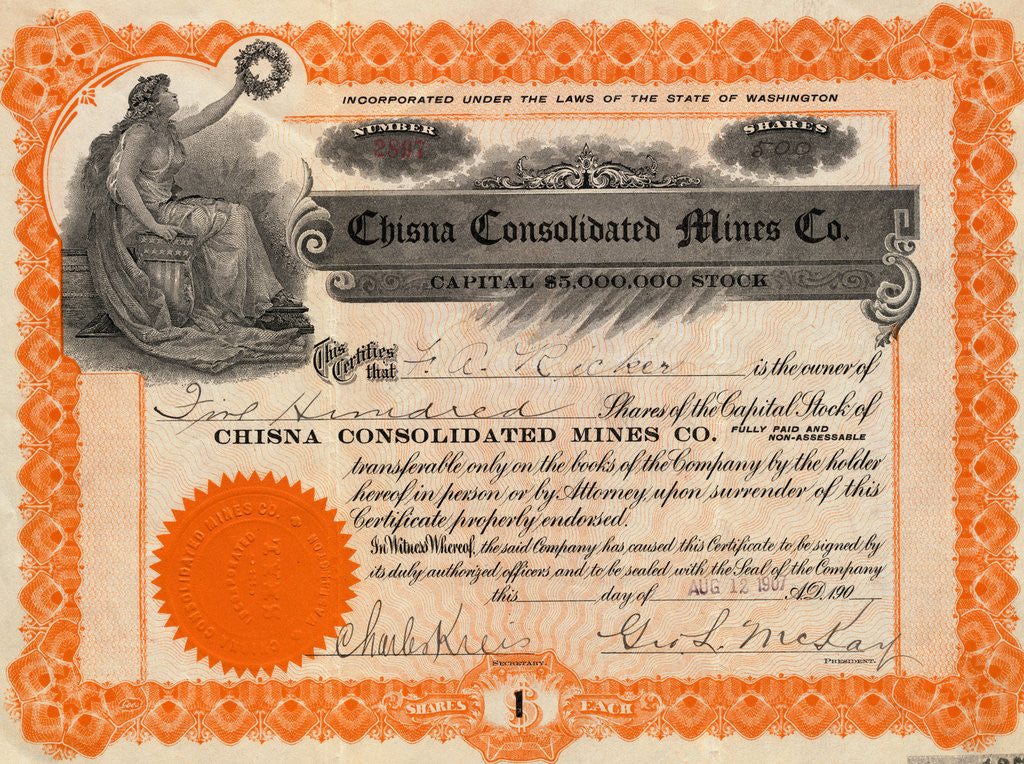 INCORPORATED UNDER THE LAWS OF THE STATE OF WASHINGTON
NUMBER
2897
SHARES
500
Chisna Consolidated Mines Co.
CAPITAL $5,000,000 STOCK
This Certifies that F. A. Ricker is the owner of
Five Hundred Shares of the Capital Stock of
CHISNA CONSOLIDATED MINES CO. FULLY PAID AND NON-ASSESSABLE
transferable only on the books of the Company by the holder
hereof in person or by Attorney, upon surrender of this
Certificate properly endorsed.
In Witness Whereof, the said Company has caused this Certificate to be signed by
its duly authorized officers and to be sealed with the Seal of the Company
this day of AUG 12 1907 A.D. 190
CONSOLIDATED MINES CO.
Charles Kreis
Geo. L. McKay
SECRETARY.
PRESIDENT.
SHARES $1 EACH